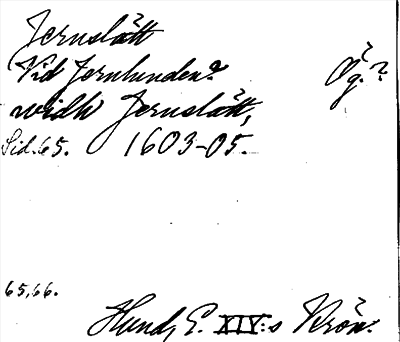 Jernslätt
Vid Jernlunden?
Ög.?
widh Jernslätt,
Sid. 65. 1603-05.
65, 66.
Hund, E. XIV:s Krön.